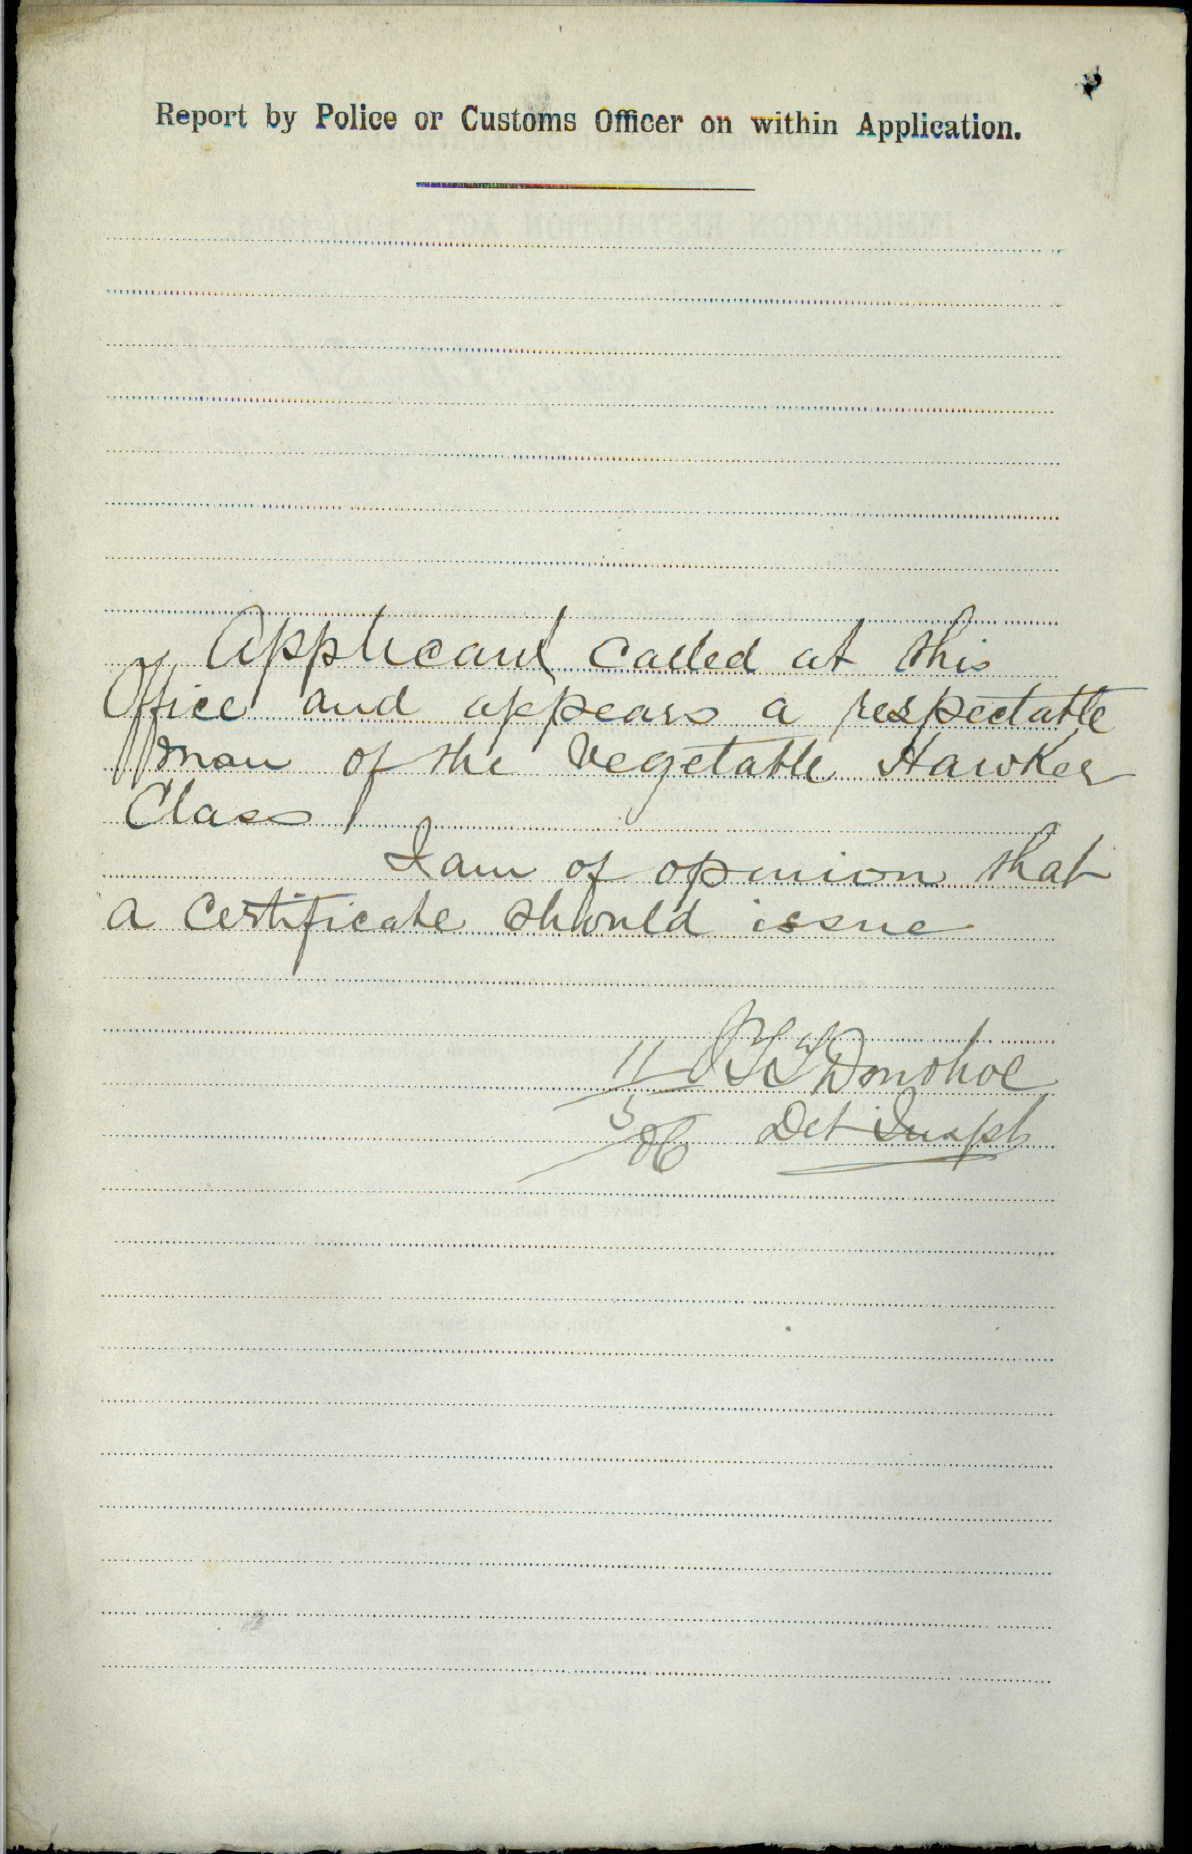 Report by Police or Customs Officer on within Application.
Applicant called at this
Office and appears a respectable
man of the Vegetable Hawker
Class
I am of opinion that
a Certificate should issue
11 Donohoe
5
06 Det Inspr